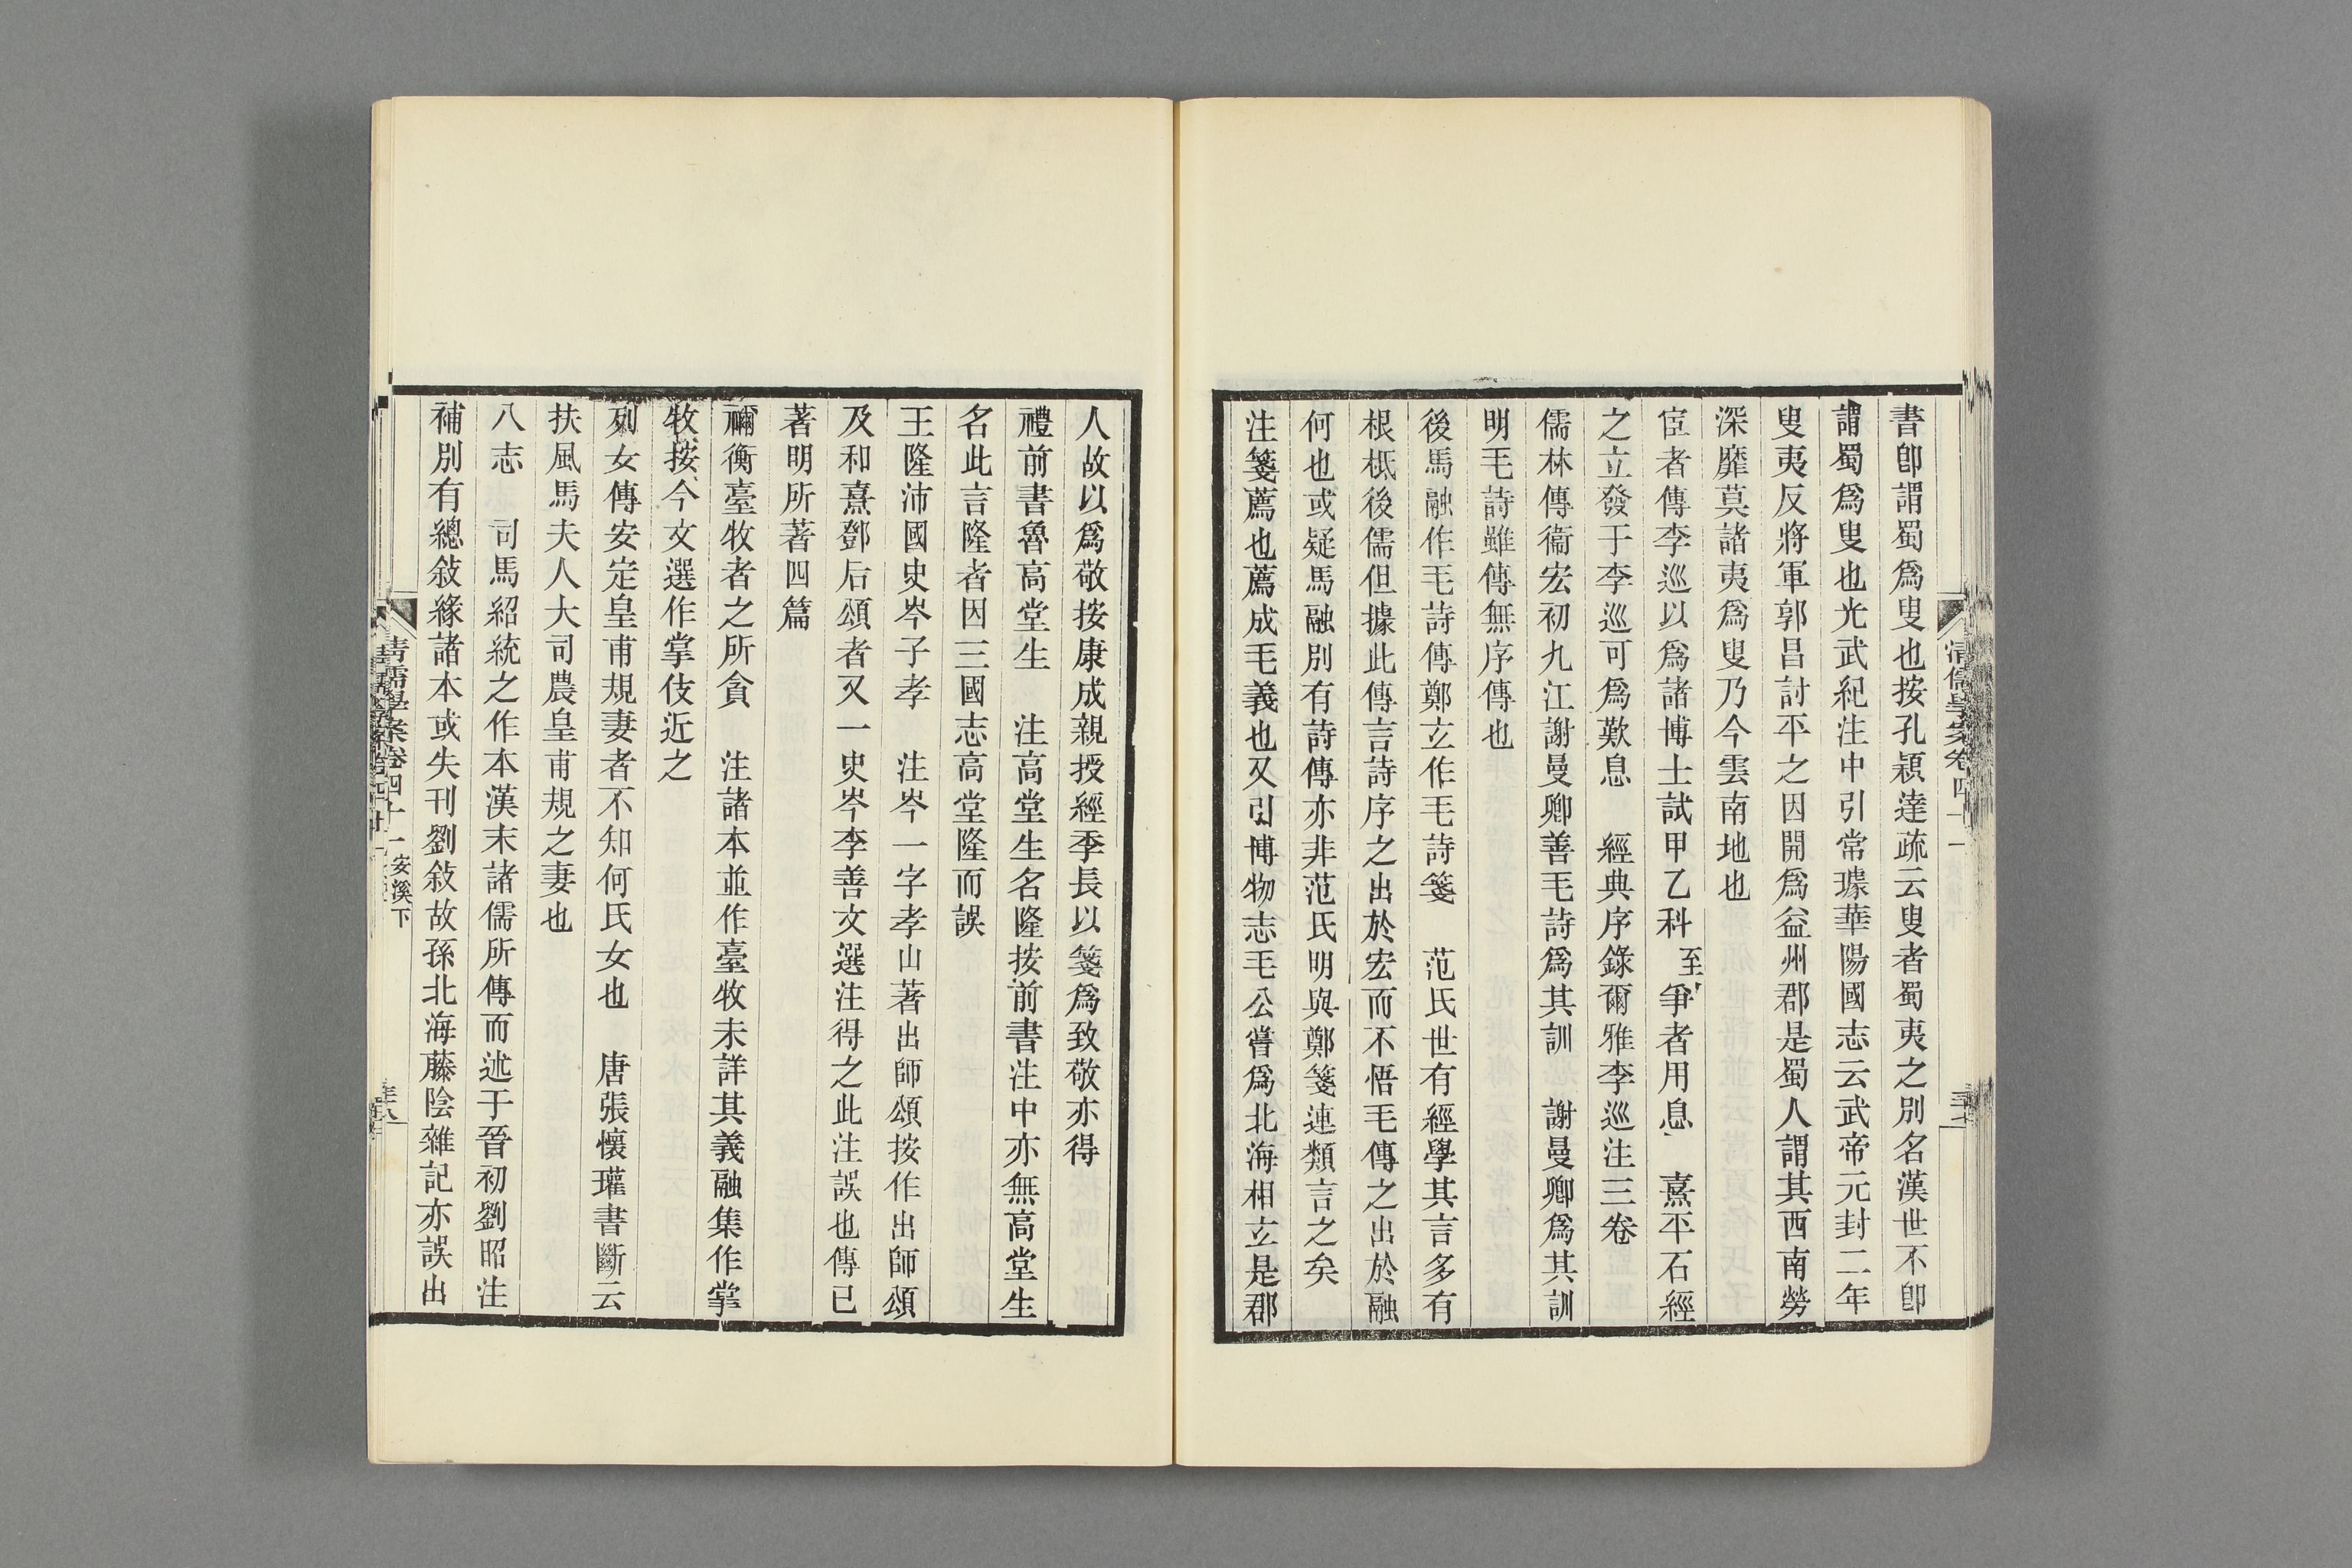 書卽謂蜀爲叟也按孔穎達疏云叟者蜀夷之別名漢世不卽
謂蜀爲叟也光武紀注中引常璩華陽國志云武帝元封二年
叟夷反將軍郭昌討平之因開爲益州郡是蜀人謂其西南勞
深靡莫諸夷爲叟乃今雲南地也
宦者傳李巡以爲諸博士試甲乙科至爭者用息　熹平石經
之立發于李巡可爲歎息　經典序錄爾雅李巡注三卷
儒林傳衞宏初九江謝曼卿善毛詩爲其訓　謝曼卿爲其訓
明毛詩雖傳無序傳也
後馬融作毛詩傳鄭玄作毛詩箋　范氏世有經學其言多有
根柢後儒但據此傳言詩序之出於宏而不悟毛傳之出於融
何也或疑馬融別有詩傳亦非范氏明與鄭箋連類言之矣
注箋薦也薦成毛義也又引博物志毛公嘗爲北海相玄是郡
人故以爲敬按康成親授經季長以箋爲致敬亦得
禮前書魯高堂生　注高堂生名隆按前書注中亦無高堂生
名此言隆者因三國志高堂隆而誤
王隆沛國史岑子孝　注岑一字孝山著出師頌按作出師頌
及和熹鄧后頌者又一史岑李善文選注得之此注誤也傳已
著明所著四篇
禰衡臺牧者之所貪　注諸本並作臺牧未詳其義融集作掌
牧按今文選作掌伎近之
列女傳安定皇甫規妻者不知何氏女也　唐張懷瓘書斷云
扶風馬夫人大司農皇甫規之妻也
八志　司馬紹統之作本漢末諸儒所傳而述于晉初劉昭注
補別有總敍緣諸本或失刊劉敍故孫北海藤陰雜記亦誤出
清儒學案卷四十一　安溪下